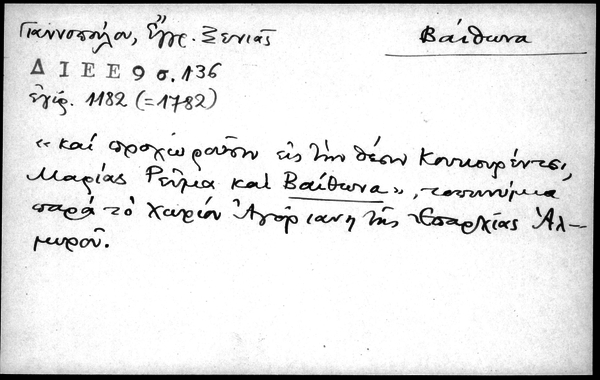 Γιαννοπούλου, Ἔγγρ. Ξενιᾶς
Βάϊθωνα
Δ Ι Ε Ε 9 σ. 136
ἐγίρ. 1182 (=1782)
«καὶ προχωροῦσιν εἰς τὴν θέσιν Κουκουρέντσι,
Μαρίας Ρεῦμα καὶ Βάϊθωνα», τοπωνύμια
παρὰ τὸ χωρίον Ἀγόριανη τῆς Ἐπαρχίας Ἁλ-
μυροῦ.